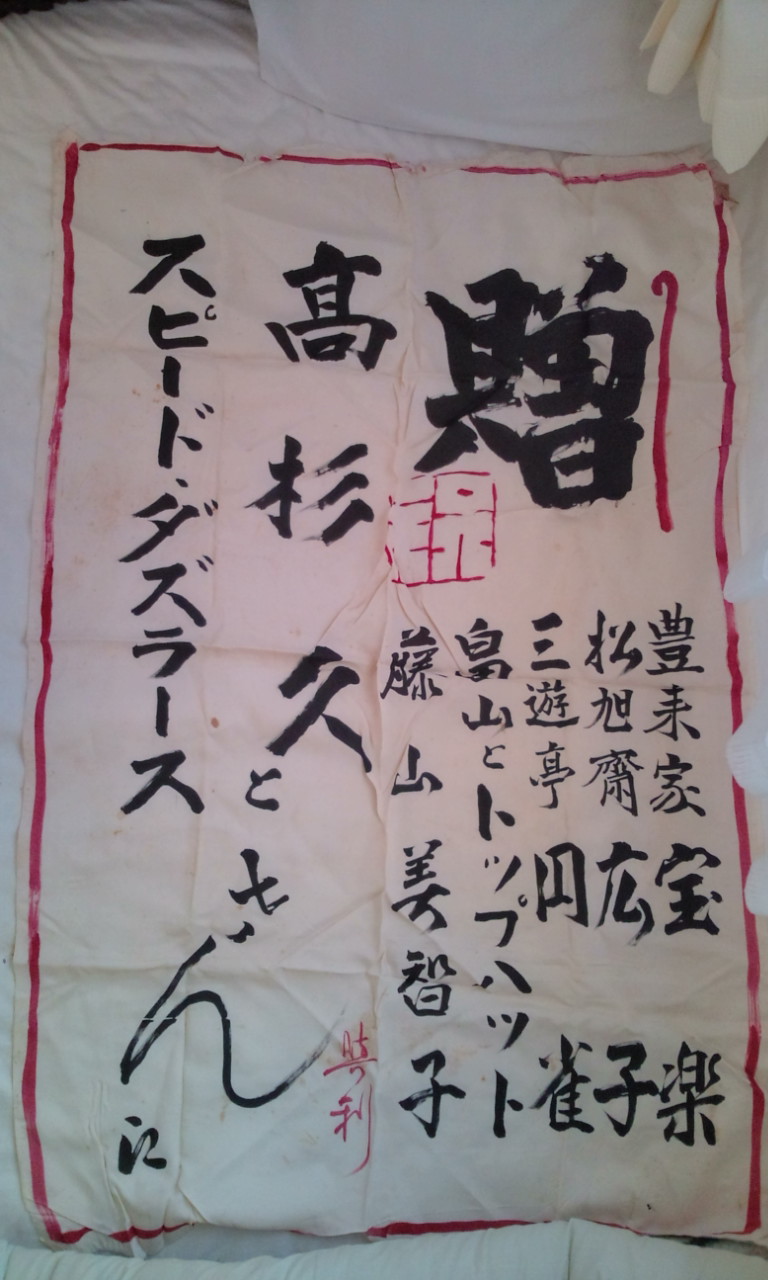 贈
豊来家宝楽
松旭齋広子
三遊亭円雀
畠山とトップハット
藤山美智子
高杉久と
スピード・ダズラース
さん江